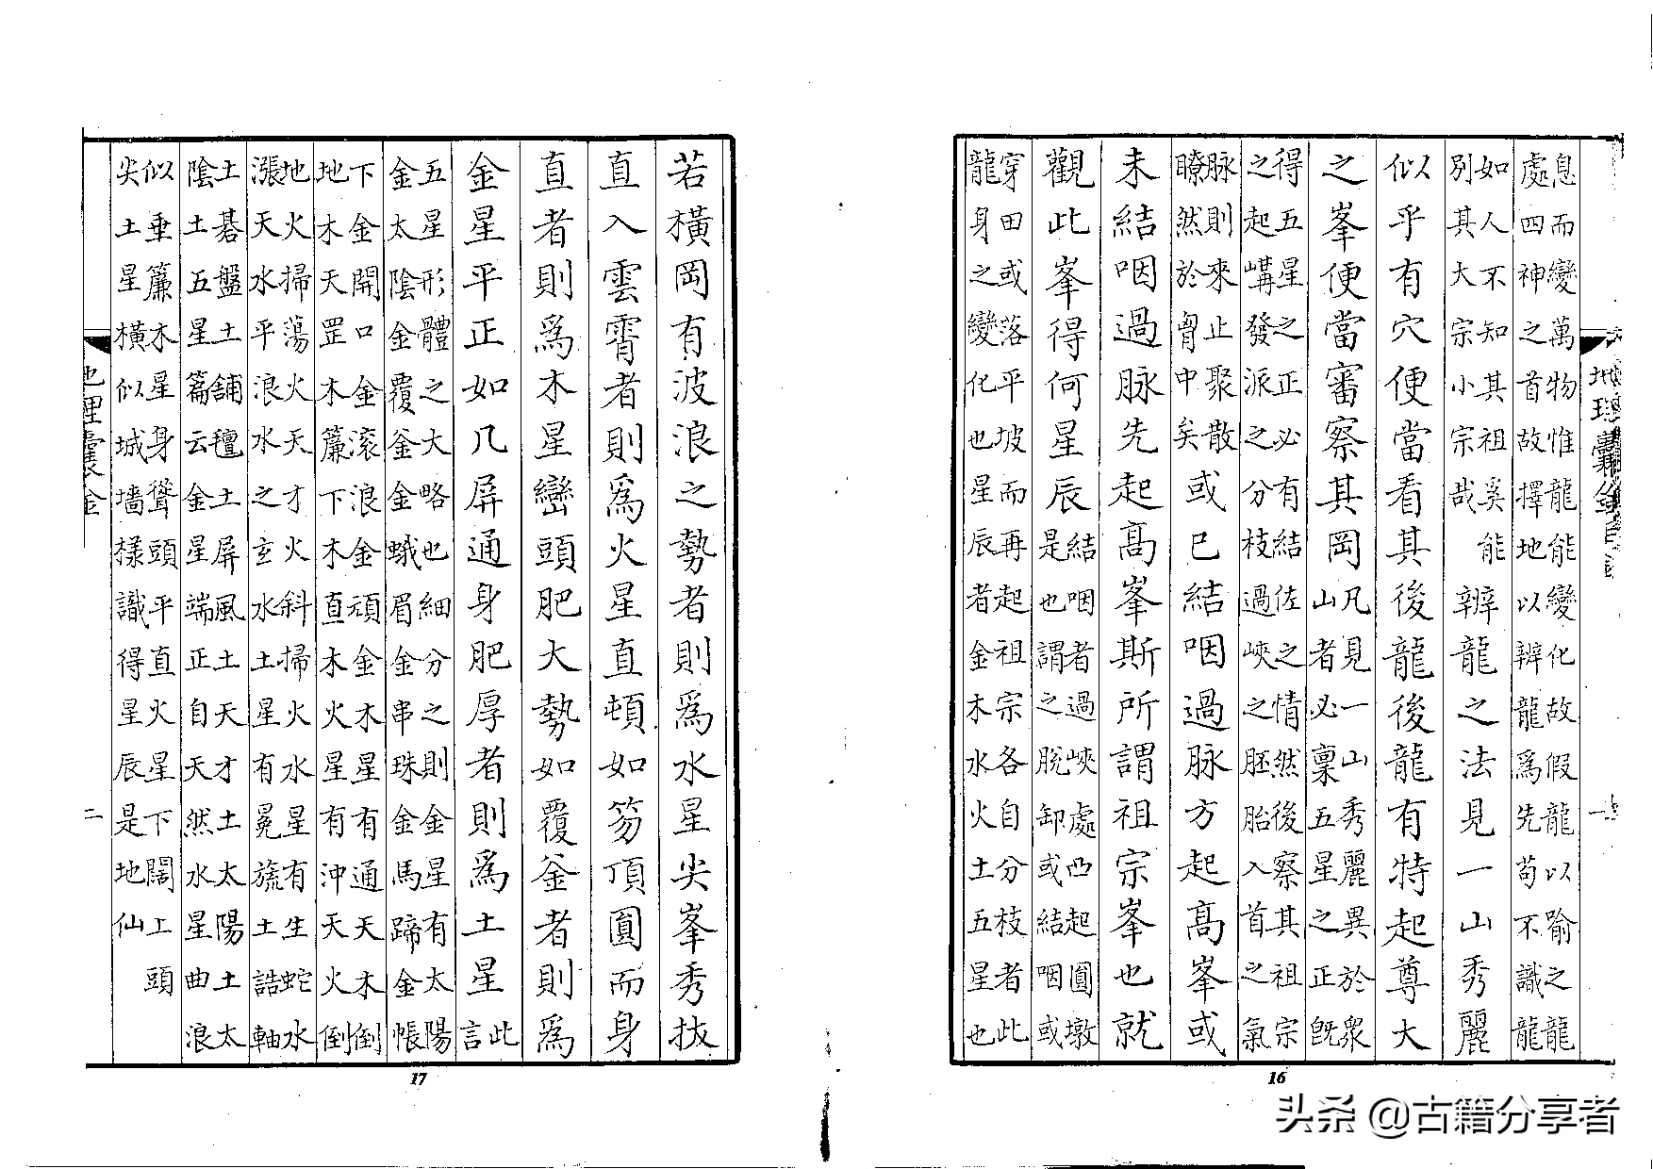 息而變萬物惟龍能變化故假龍以喻之龍
處四神之首故擇地以辨龍爲先苟不識龍
如人不知其祖奚能
別其大宗小宗哉
辨龍之法見一山秀麗
似乎有穴便當看其後龍後龍有特起尊大
之峯便當審察其岡
凡見一山秀麗異於衆
山者必稟五星之正旣
得五星之正必有結佐之情然後察其祖宗
之起發派之分枝過峽之胚胎入首之氣
脉則來止聚散
瞭然於胷中矣
或已結咽過脉方起高峯或
未結咽過脉先起高峯斯所謂祖宗峯也就
觀此峯得何星辰
結咽者過峽處凹起圓墩
是也謂之脫卸或結咽或
穿田或落平坡而再起祖宗各自分枝者此
龍身之變化也星辰者金木水火土五星也
地理囊金
一
16
若橫岡有波浪之勢者則爲水星尖峯秀拔
直入雲霄者則爲火星直頓如笏頂圓而身
直者則爲木星巒頭肥大勢如覆釜者則爲
金星平正如几屏通身肥厚者則爲土星
此
言
五星形體之大略也細分之則金星有太陽
金太陰金覆釜金蛾眉金串珠金馬蹄金帳
下金開口金滚浪金頑金木星有通天木倒
地木天罡木簾下木直木火星有沖天火倒
地火掃蕩火天才火斜掃火水星有生蛇水
漲天水平浪水之玄水土星有冕旒土誥軸
土碁盤土舖氊土屏風土天才土太陽土太
陰土五星篇云金星端正自天然水星曲浪
似垂簾木星身聳頭平直火星下闊上頭
尖土星橫似城墻樣識得星辰是地仙
地理囊金
二
17
头条 @古籍分享者